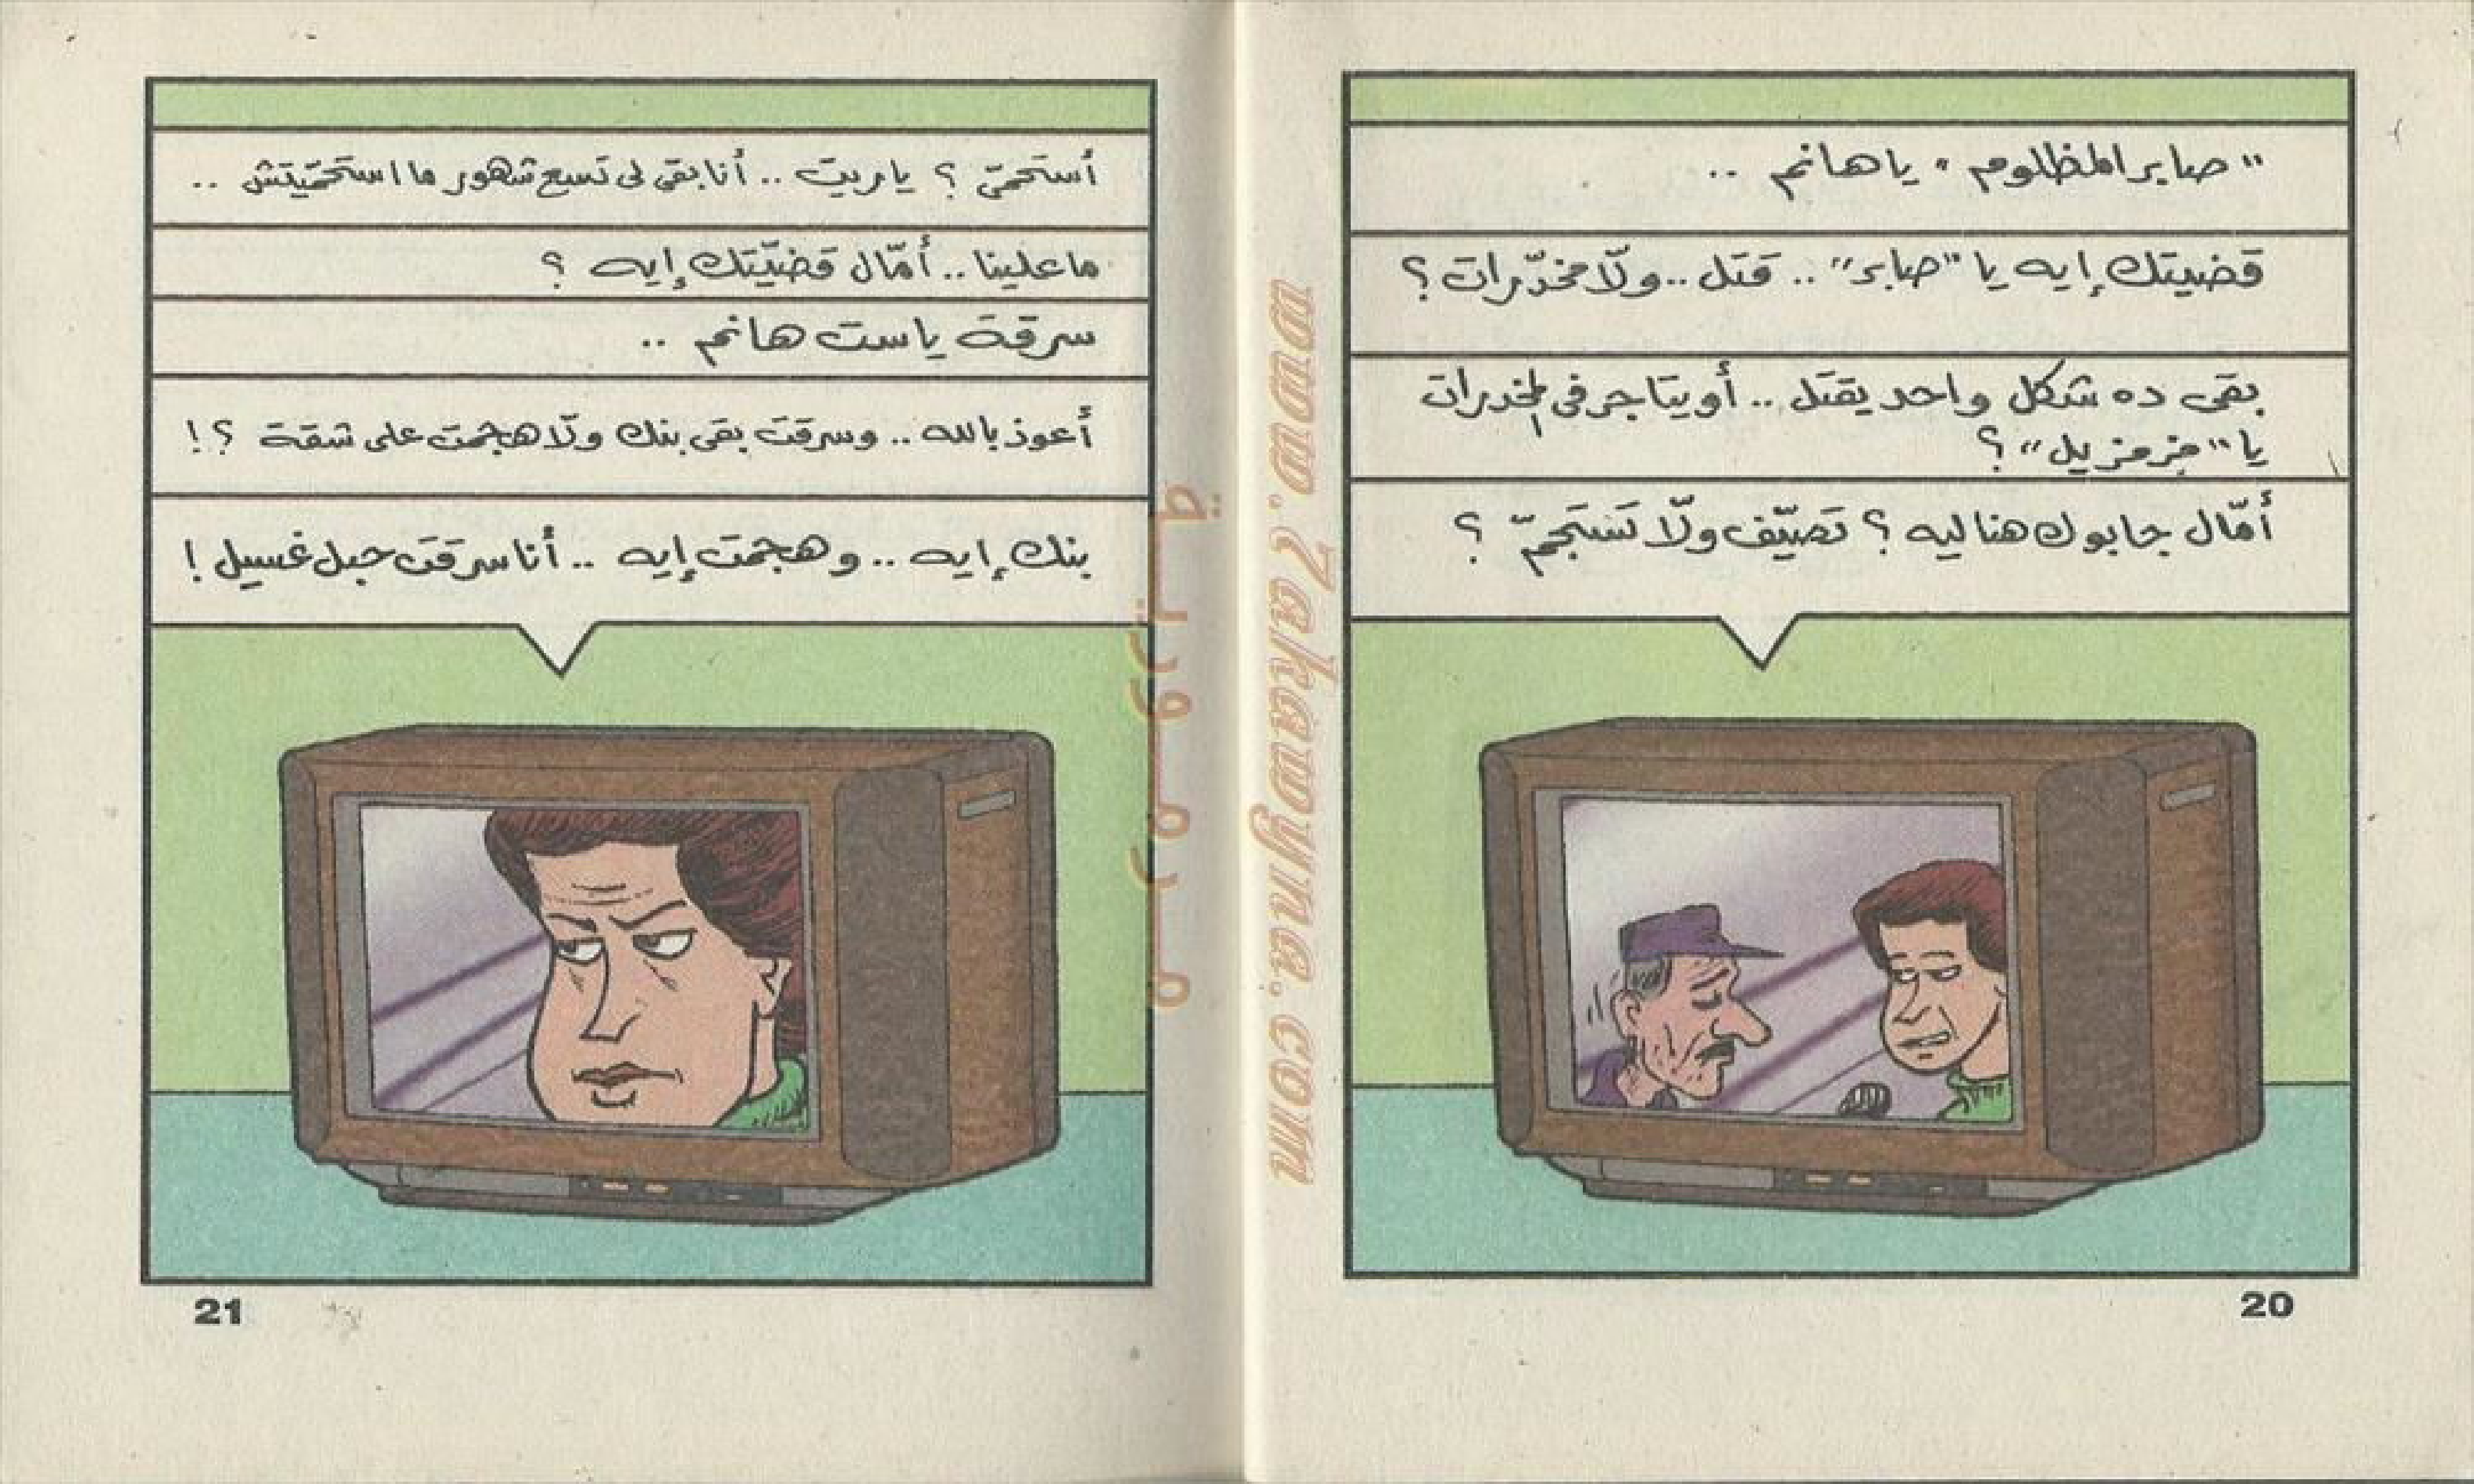 "صابر المظلوم" يا هانم ..
قضيتك إيه يا "صابر" .. قتل .. ولّا مخدّرات ؟
بقى ده شكل واحد يقتل .. أو يتاجر فى المخدرات
يا "مزمزيل" ؟
أمّال جابوك هنا ليه ؟ تصيّف ولّا تستجمّ ؟
20
أستحمّى ؟ يا ريت .. أنا بقى لى تسع شهور ما استحمّيتش ..
ما علينا .. أمّال قضيّتك إيه ؟
سرقة يا ست هانم ..
أعوذ بالله .. وسرقت بقى بنك ولّا هجمت على شقة ؟!
بنك إيه .. وهجمت إيه .. أنا سرقت حبل غسيل !
21
www.7akawyna.com
مرمورية